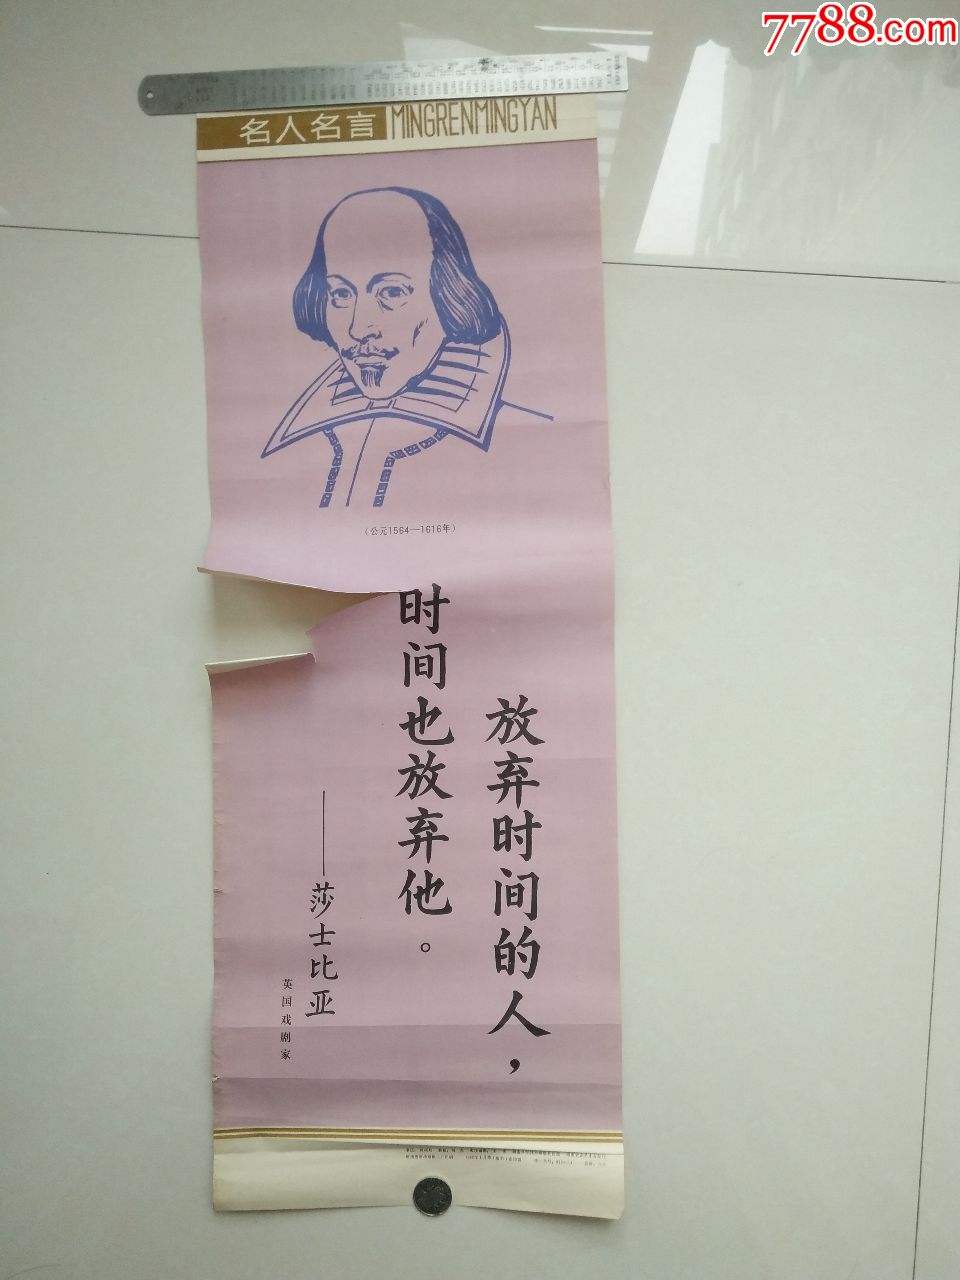 7788.com
名人名言 MINGRENMINGYAN
(公元1564—1616年)
放弃时间的人，
时间也放弃他。
——莎士比亚
英国戏剧家